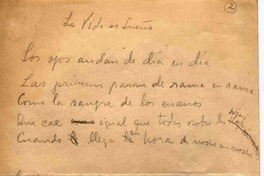 La Vida es Sueño
2
Los ojos andan de día en día
Las princesas pasan de rama en rama
Como la sangre de los enanos
Que cae igual que todas sobre las hojas
Cuando llega la hora de noche en noche